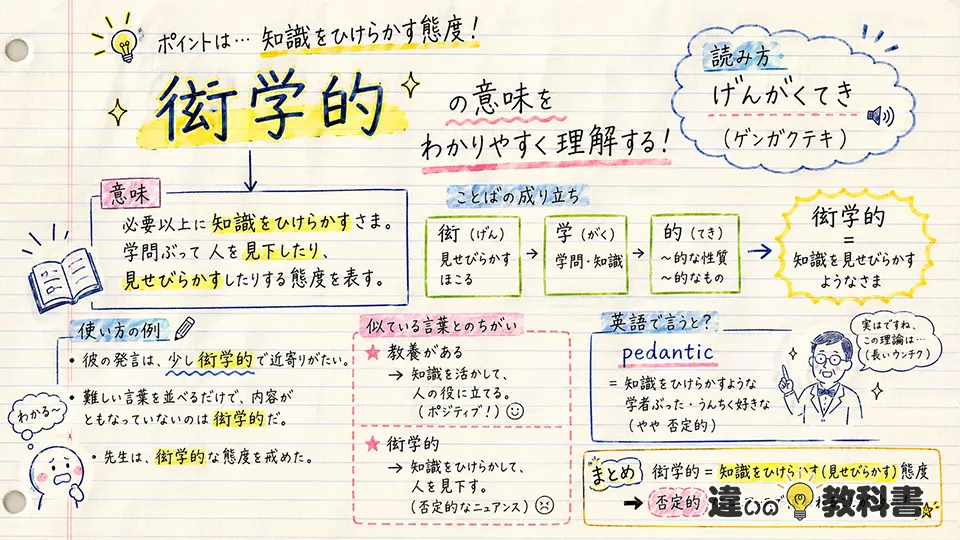 ポイントは… 知識をひけらかす態度！
衒学的
の意味を
わかりやすく理解する！
読み方
げんがくてき
（ゲンガクテキ）
意味
必要以上に知識をひけらかすさま。
学問ぶって人を見下したり、
見せびらかすしたりする態度を表す。
ことばの成り立ち
衒（げん）
見せびらかす
ほこる
→
学（がく）
学問・知識
→
的（てき）
～的な性質
～的なもの
→
衒学的
＝
知識を見せびらかす
ようなさま
使い方の例
・彼の発言は、少し衒学的で近寄りがたい。
・難しい言葉を並べるだけで、内容が
ともなっていないのは衒学的だ。
・先生は、衒学的な態度を戒めた。
わかる～
似ている言葉とのちがい
★ 教養がある
→ 知識を活かして、
人の役に立てる。
（ポジティブ！）
★ 衒学的
→ 知識をひけらかして、
人を見下す。
（否定的なニュアンス）
英語で言うと？
pedantic
＝ 知識をひけらかすような
学者ぶった・うんちく好きな
（やや 否定的）
実はですね、
この理論は…
（長いウンチク）
まとめ
衒学的＝知識をひけらかす（見せびらかす）態度
→ 否定的
違いの教科書